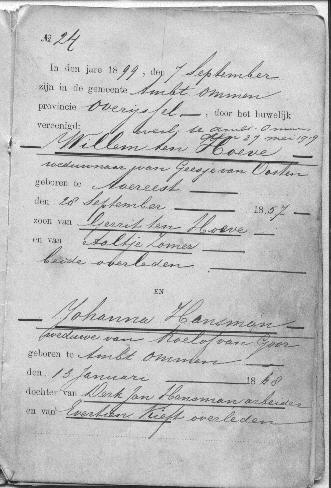 No 24
In den jare 1899, den 7 September
zijn in de gemeente Ambt Ommen
provincie Overijssel, door het huwelijk
overl. te Ambt Ommen
vereenigd: den 29 mei 1919
Willem ten Hoeve
weduwnaar van Geesje van Oosten
geboren te Avereest
den 28 September 1857
zoon van Gerrit ten Hoeve
en van Aaltje Zomer
beide overleden
EN
Johanna Hansman
weduwe van Roelof van
geboren te Ambt Ommen
den 13 Januari 18 8
dochter van Derk Jan Hansman arbeider
en van Evertien Kieft overleden